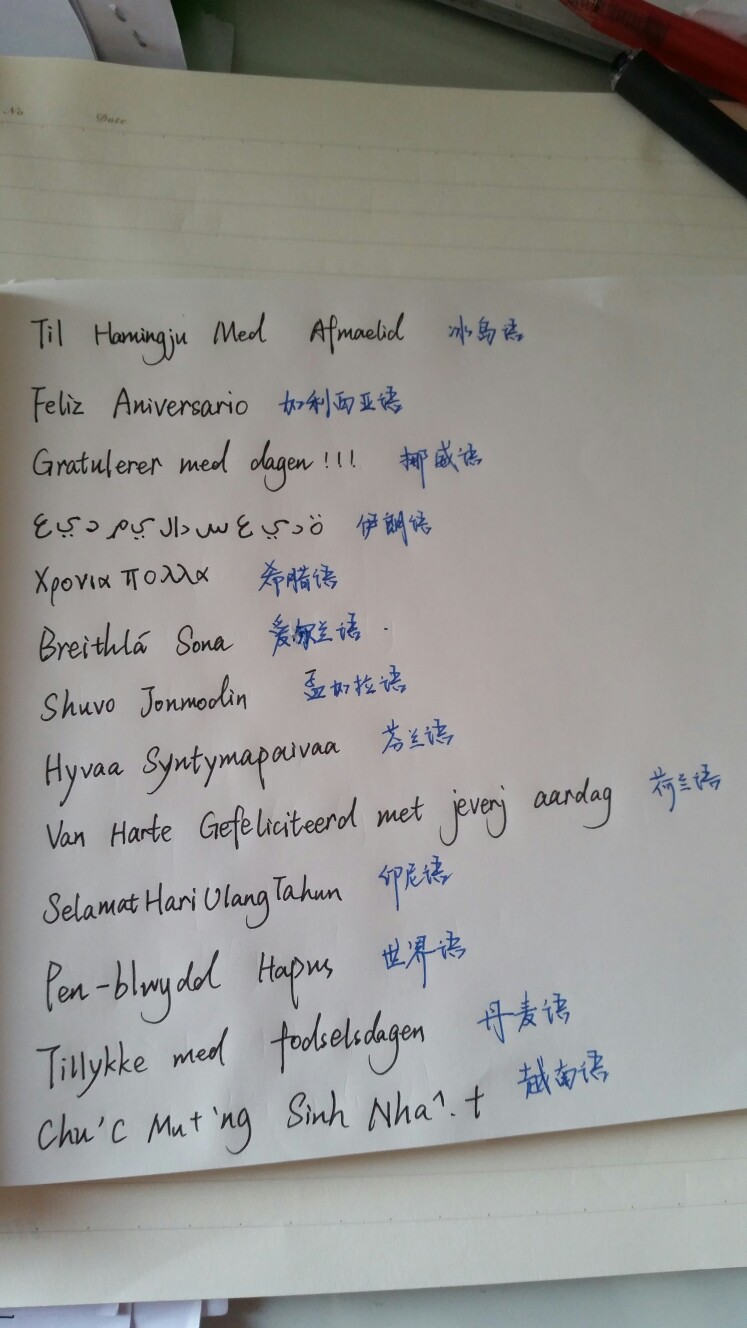 No Date
Til Hamingju Med Afmaelid 冰岛语
Feliz Aniversario 加利西亚语
Gratulerer med dagen!!! 挪威语
ع ي د م ي ال د س ع ي د ة 伊朗语
Χρονια πολλα 希腊语
Breithlá Sona 爱尔兰语
Shuvo Jonmodin 孟加拉语
Hyvaa Syntymapaivaa 芬兰语
Van Harte Gefeliciteerd met jeverj aardag 荷兰语
Selamat Hari Ulang Tahun 印尼语
Pen-blwydd Hapus 世界语
Tillykke med fodselsdagen 丹麦语
Chu'c Mu+'ng Sinh Nha^.t 越南语